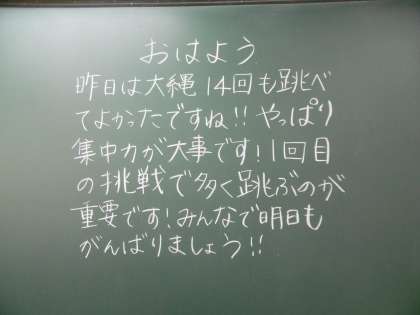 おはよう
昨日は大縄14回も跳べ
てよかったですね!!やっぱり
集中力が大事です!1回目
の挑戦で多く跳ぶのが
重要です!みんなで明日も
がんばりましょう!!